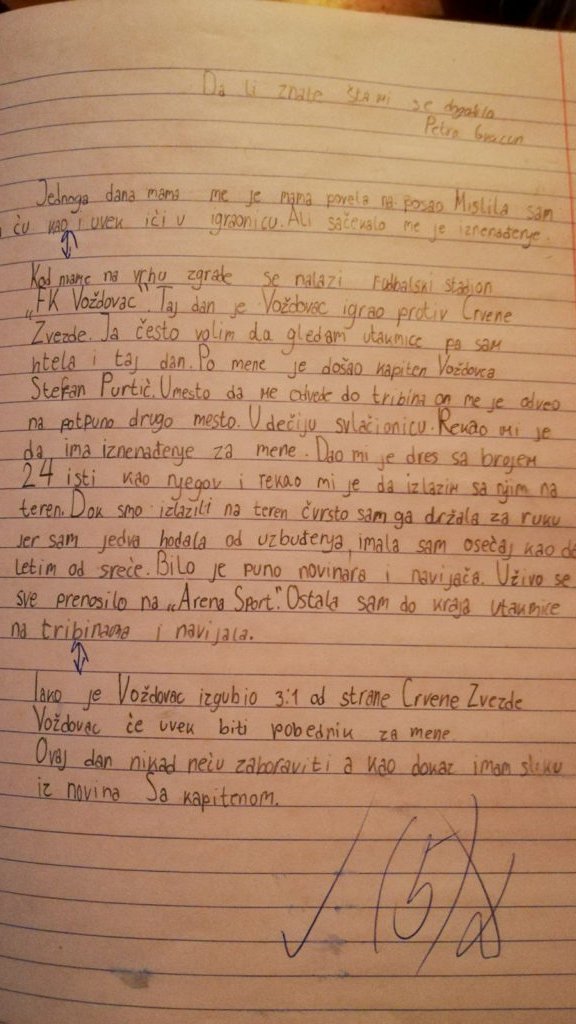 Da li znate šta mi se dogodilo
Petra
Jednoga dana mama me je mama povela na posao Mislila sam
ću kao i uvek ići u igraonicu. Ali sačekalo me je iznenađenje.
Kod mame na vrhu zgrade se nalazi fudbalski stadion
„FK Voždovac" Taj dan je Voždovac igrao protiv Crvene
Zvezde. Ja često volim da gledam utakmice pa sam
htela i taj dan. Po mene je došao kapiten Voždovca
Stefan Purtić. Umesto da me odvede do tribina on me je odveo
na potpuno drugo mesto. U dečiju svlačionicu. Rekao mi je
da ima iznenađenje za mene. Dao mi je dres sa brojem
24 isti kao njegov i rekao mi je da izlazim sa njim na
teren. Dok smo izlazili na teren čvrsto sam ga držala za ruku
jer sam jedva hodala od uzbuđenja, imala sam osećaj kao da
letim od sreće. Bilo je puno novinara i navijača. Uživo se
sve prenosilo na „Arena Sport". Ostala sam do kraja utakmice
na tribinama i navijala.
Iako je Voždovac izgubio 3:1 od strane Crvene Zvezde
Voždovac će uvek biti pobednik za mene.
Ovaj dan nikad neću zaboraviti a kao dokaz imam sliku
iz novina Sa kapitenom.
(5)